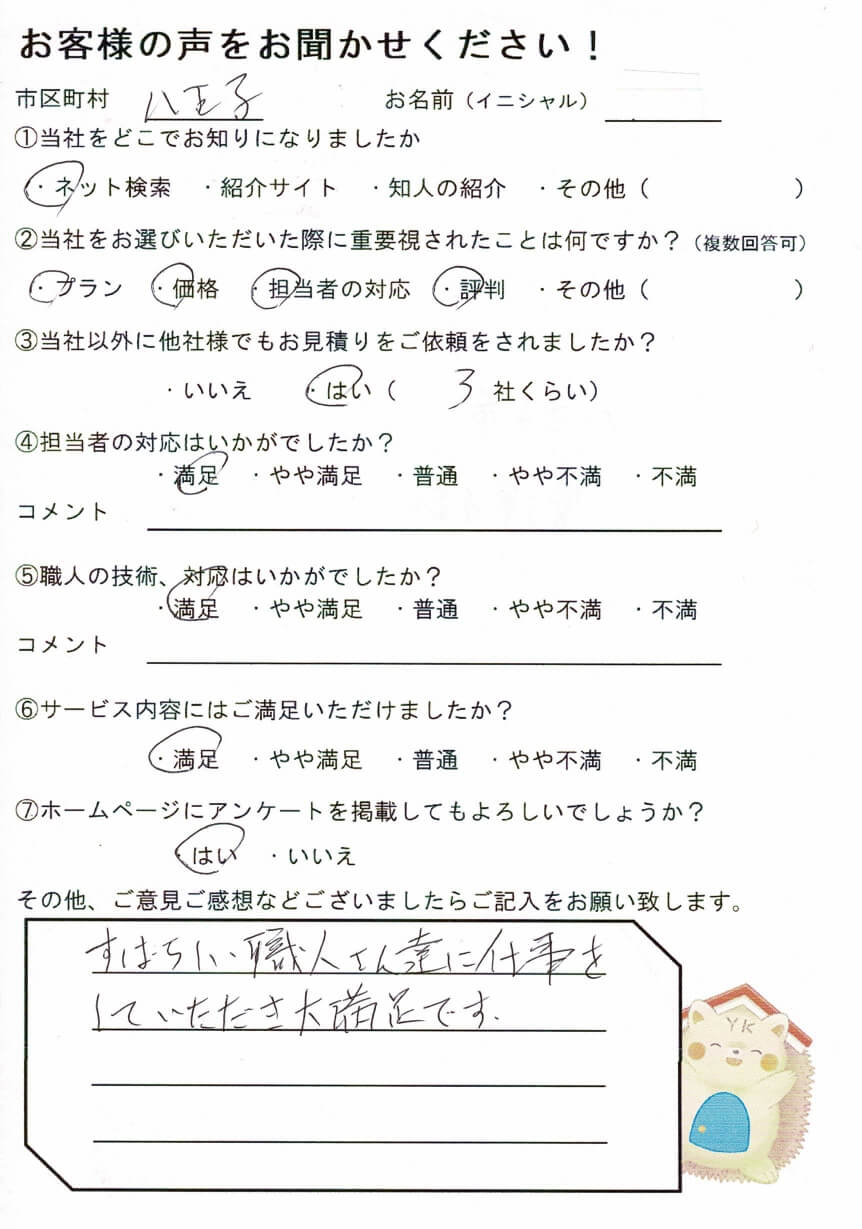 お客様の声をお聞かせください！
市区町村 八王子 お名前（イニシャル）
①当社をどこでお知りになりましたか
・ネット検索 ・紹介サイト ・知人の紹介 ・その他（ ）
②当社をお選びいただいた際に重要視されたことは何ですか？（複数回答可）
・プラン ・価格 ・担当者の対応 ・評判 ・その他（ ）
③当社以外に他社様でもお見積りをご依頼をされましたか？
・いいえ ・はい（ 3 社くらい）
④担当者の対応はいかがでしたか？
・満足 ・やや満足 ・普通 ・やや不満 ・不満
コメント
⑤職人の技術、対応はいかがでしたか？
・満足 ・やや満足 ・普通 ・やや不満 ・不満
コメント
⑥サービス内容にはご満足いただけましたか？
・満足 ・やや満足 ・普通 ・やや不満 ・不満
⑦ホームページにアンケートを掲載してもよろしいでしょうか？
・はい ・いいえ
その他、ご意見ご感想などございましたらご記入をお願い致します。
すばらしい職人さん達に仕事を
していただき大満足です.
YK